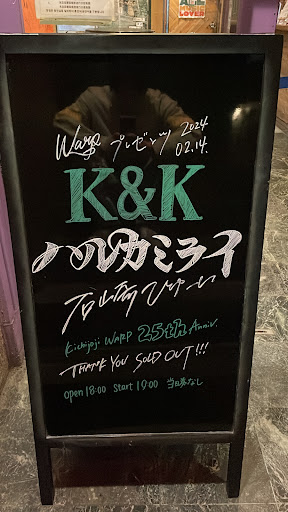 LOVED
Warp プレゼンツ 2024
02.14.
K&K
ハルカミライ
石崎ひゅーい
Kichijoji WARP 25th Anniv.
THANK YOU SOLD OUT!!!
open 18:00 start 19:00 当日券なし